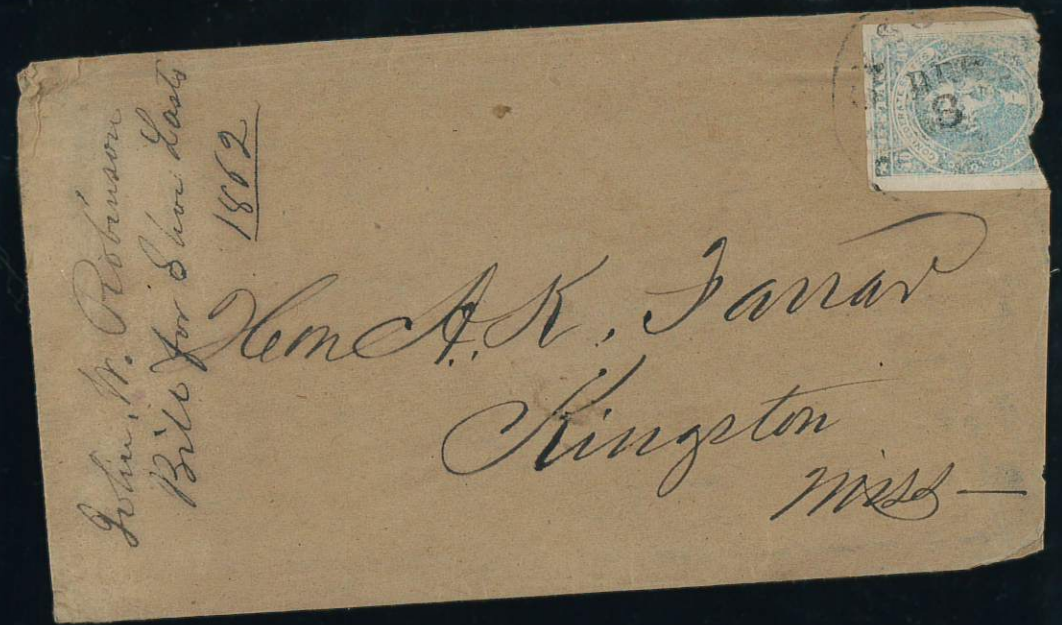 John. W. Robinson
Bill for Shoe Lasts
1862
Hon A. K. Farrar
Kingston
Miss
8